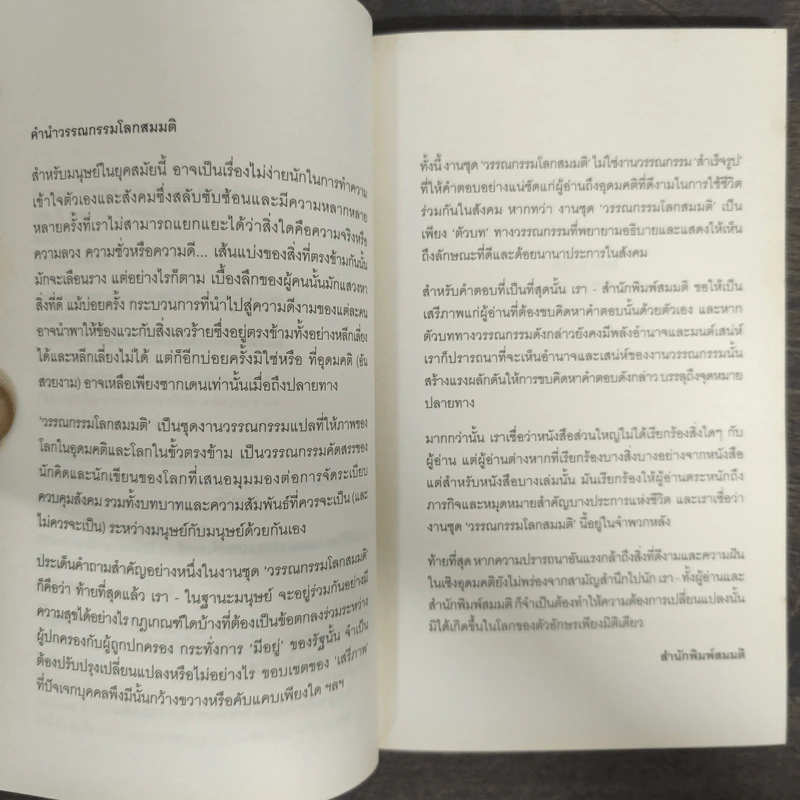 คำนำวรรณกรรมโลกสมมติ
สำหรับมนุษย์ในยุคสมัยนี้ อาจเป็นเรื่องไม่ง่ายนักในการทำความ
เข้าใจตัวเองและสังคมซึ่งสลับซับซ้อนและมีความหลากหลาย
หลายครั้งที่เราไม่สามารถแยกแยะได้ว่าสิ่งใดคือความจริงหรือ
ความลวง ความชั่วหรือความดี... เส้นแบ่งของสิ่งที่ตรงข้ามกันนั้น
มักจะเลือนราง แต่อย่างไรก็ตาม เบื้องลึกของผู้คนนั้นมักแสวงหา
สิ่งที่ดี แม้บ่อยครั้ง กระบวนการที่นำไปสู่ความดีงามของแต่ละคน
อาจนำพาให้ข้องแวะกับสิ่งเลวร้ายซึ่งอยู่ตรงข้ามทั้งอย่างหลีกเลี่ยง
ได้และหลีกเลี่ยงไม่ได้ แต่ก็อีกบ่อยครั้งมิใช่หรือ ที่อุดมคติ (อัน
สวยงาม) อาจเหลือเพียงซากเดนเท่านั้นเมื่อถึงปลายทาง
'วรรณกรรมโลกสมมติ' เป็นชุดงานวรรณกรรมแปลที่ให้ภาพของ
โลกในอุดมคติและโลกในขั้วตรงข้าม เป็นวรรณกรรมคัดสรรของ
นักคิดและนักเขียนของโลกที่เสนอมุมมองต่อการจัดระเบียบ
ควบคุมสังคม รวมทั้งบทบาทและความสัมพันธ์ที่ควรจะเป็น (และ
ไม่ควรจะเป็น) ระหว่างมนุษย์กับมนุษย์ด้วยกันเอง
ประเด็นคำถามสำคัญอย่างหนึ่งในงานชุด 'วรรณกรรมโลกสมมติ'
ก็คือว่า ท้ายที่สุดแล้ว เรา - ในฐานะมนุษย์ จะอยู่ร่วมกันอย่างมี
ความสุขได้อย่างไร กฎเกณฑ์ใดบ้างที่ต้องเป็นข้อตกลงร่วมระหว่าง
ผู้ปกครองกับผู้ถูกปกครอง กระทั่งการ 'มีอยู่' ของรัฐนั้น จำเป็น
ต้องปรับปรุงเปลี่ยนแปลงหรือไม่อย่างไร ขอบเขตของ 'เสรีภาพ'
ที่ปัจเจกบุคคลพึงมีนั้นกว้างขวางหรือคับแคบเพียงใด ฯลฯ
ทั้งนี้ งานชุด 'วรรณกรรมโลกสมมติ' ไม่ใช่งานวรรณกรรม 'สำเร็จรูป'
ที่ให้คำตอบอย่างแน่ชัดแก่ผู้อ่านถึงอุดมคติที่ดีงามในการใช้ชีวิต
ร่วมกันในสังคม หากทว่า งานชุด 'วรรณกรรมโลกสมมติ' เป็น
เพียง 'ตัวบท' ทางวรรณกรรมที่พยายามอธิบายและแสดงให้เห็น
ถึงลักษณะที่ดีและด้อยนานาประการในสังคม
สำหรับคำตอบที่เป็นที่สุดนั้น เรา - สำนักพิมพ์สมมติ ขอให้เป็น
เสรีภาพแก่ผู้อ่านที่ต้องขบคิดหาคำตอบนั้นด้วยตัวเอง และหาก
ตัวบททางวรรณกรรมดังกล่าวยังคงมีพลังอำนาจและมนต์เสน่ห์
เราก็ปรารถนาที่จะเห็นอำนาจและเสน่ห์ของงานวรรณกรรมนั้น
สร้างแรงผลักดันให้การขบคิดหาคำตอบดังกล่าว บรรลุถึงจุดหมาย
ปลายทาง
มากกว่านั้น เราเชื่อว่าหนังสือส่วนใหญ่ไม่ได้เรียกร้องสิ่งใดๆ กับ
ผู้อ่าน แต่ผู้อ่านต่างหากที่เรียกร้องบางสิ่งบางอย่างจากหนังสือ
แต่สำหรับหนังสือบางเล่มนั้น มันเรียกร้องให้ผู้อ่านตระหนักถึง
ภารกิจและหมุดหมายสำคัญบางประการแห่งชีวิต และเราเชื่อว่า
งานชุด 'วรรณกรรมโลกสมมติ' นี้อยู่ในจำพวกหลัง
ท้ายที่สุด หากความปรารถนาอันแรงกล้าถึงสิ่งที่ดีงามและความฝัน
ในเชิงอุดมคติยังไม่พร่องจากสามัญสำนึกไปนัก เรา - ทั้งผู้อ่านและ
สำนักพิมพ์สมมติ ก็จำเป็นต้องทำให้ความต้องการเปลี่ยนแปลงนั้น
มิได้เกิดขึ้นในโลกของตัวอักษรเพียงมิติเดียว
สำนักพิมพ์สมมติ